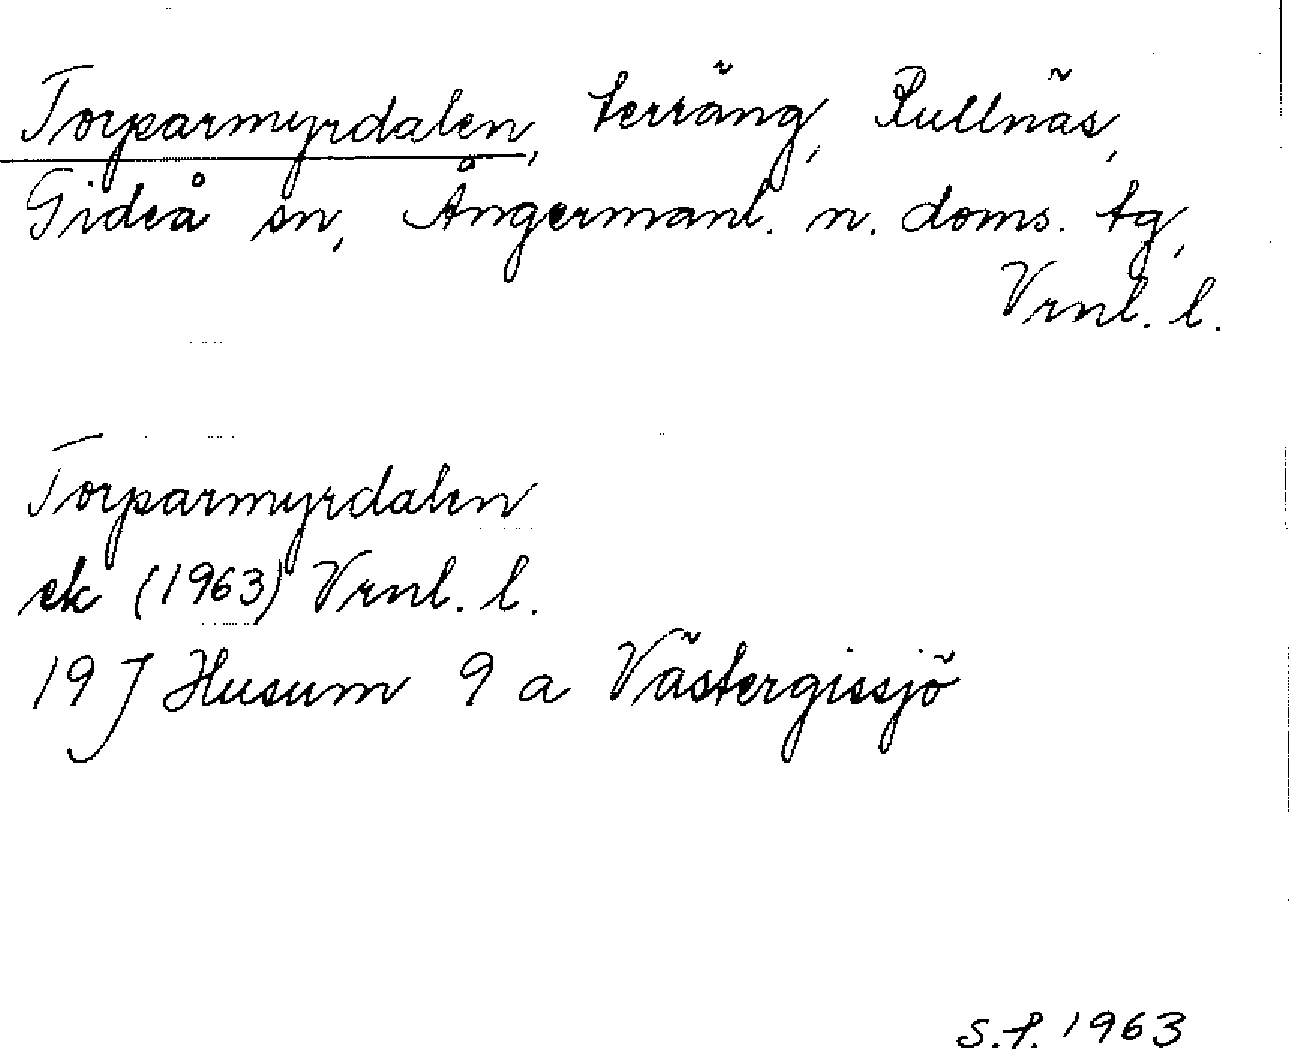 Torparmyrdalen, terräng, Rullnäs,
Gideå sn, Ångermanl. n. doms. tg,
Vrnl. l.
Torparmyrdalen
ek (1963) Vrnl. l.
19 J Husum 9 a Västergissjö
S.P. 1963